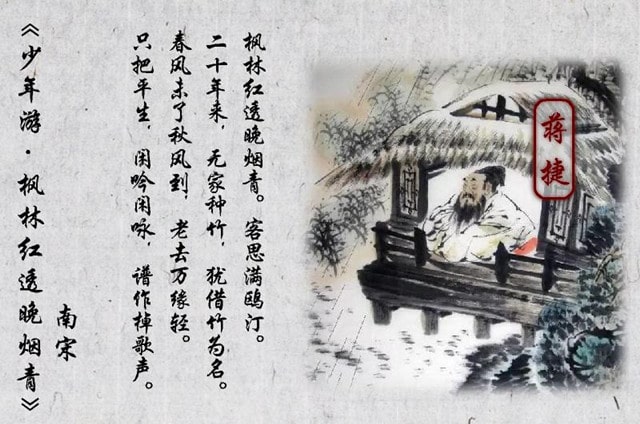 蒋捷
枫林红透晚烟青。客思满鸥汀。
二十年来，无家种竹，犹借竹为名。
春风未了秋风到，老去万缘轻。
只把平生，闲吟闲咏，谱作棹歌声。
南宋
《少年游·枫林红透晚烟青》